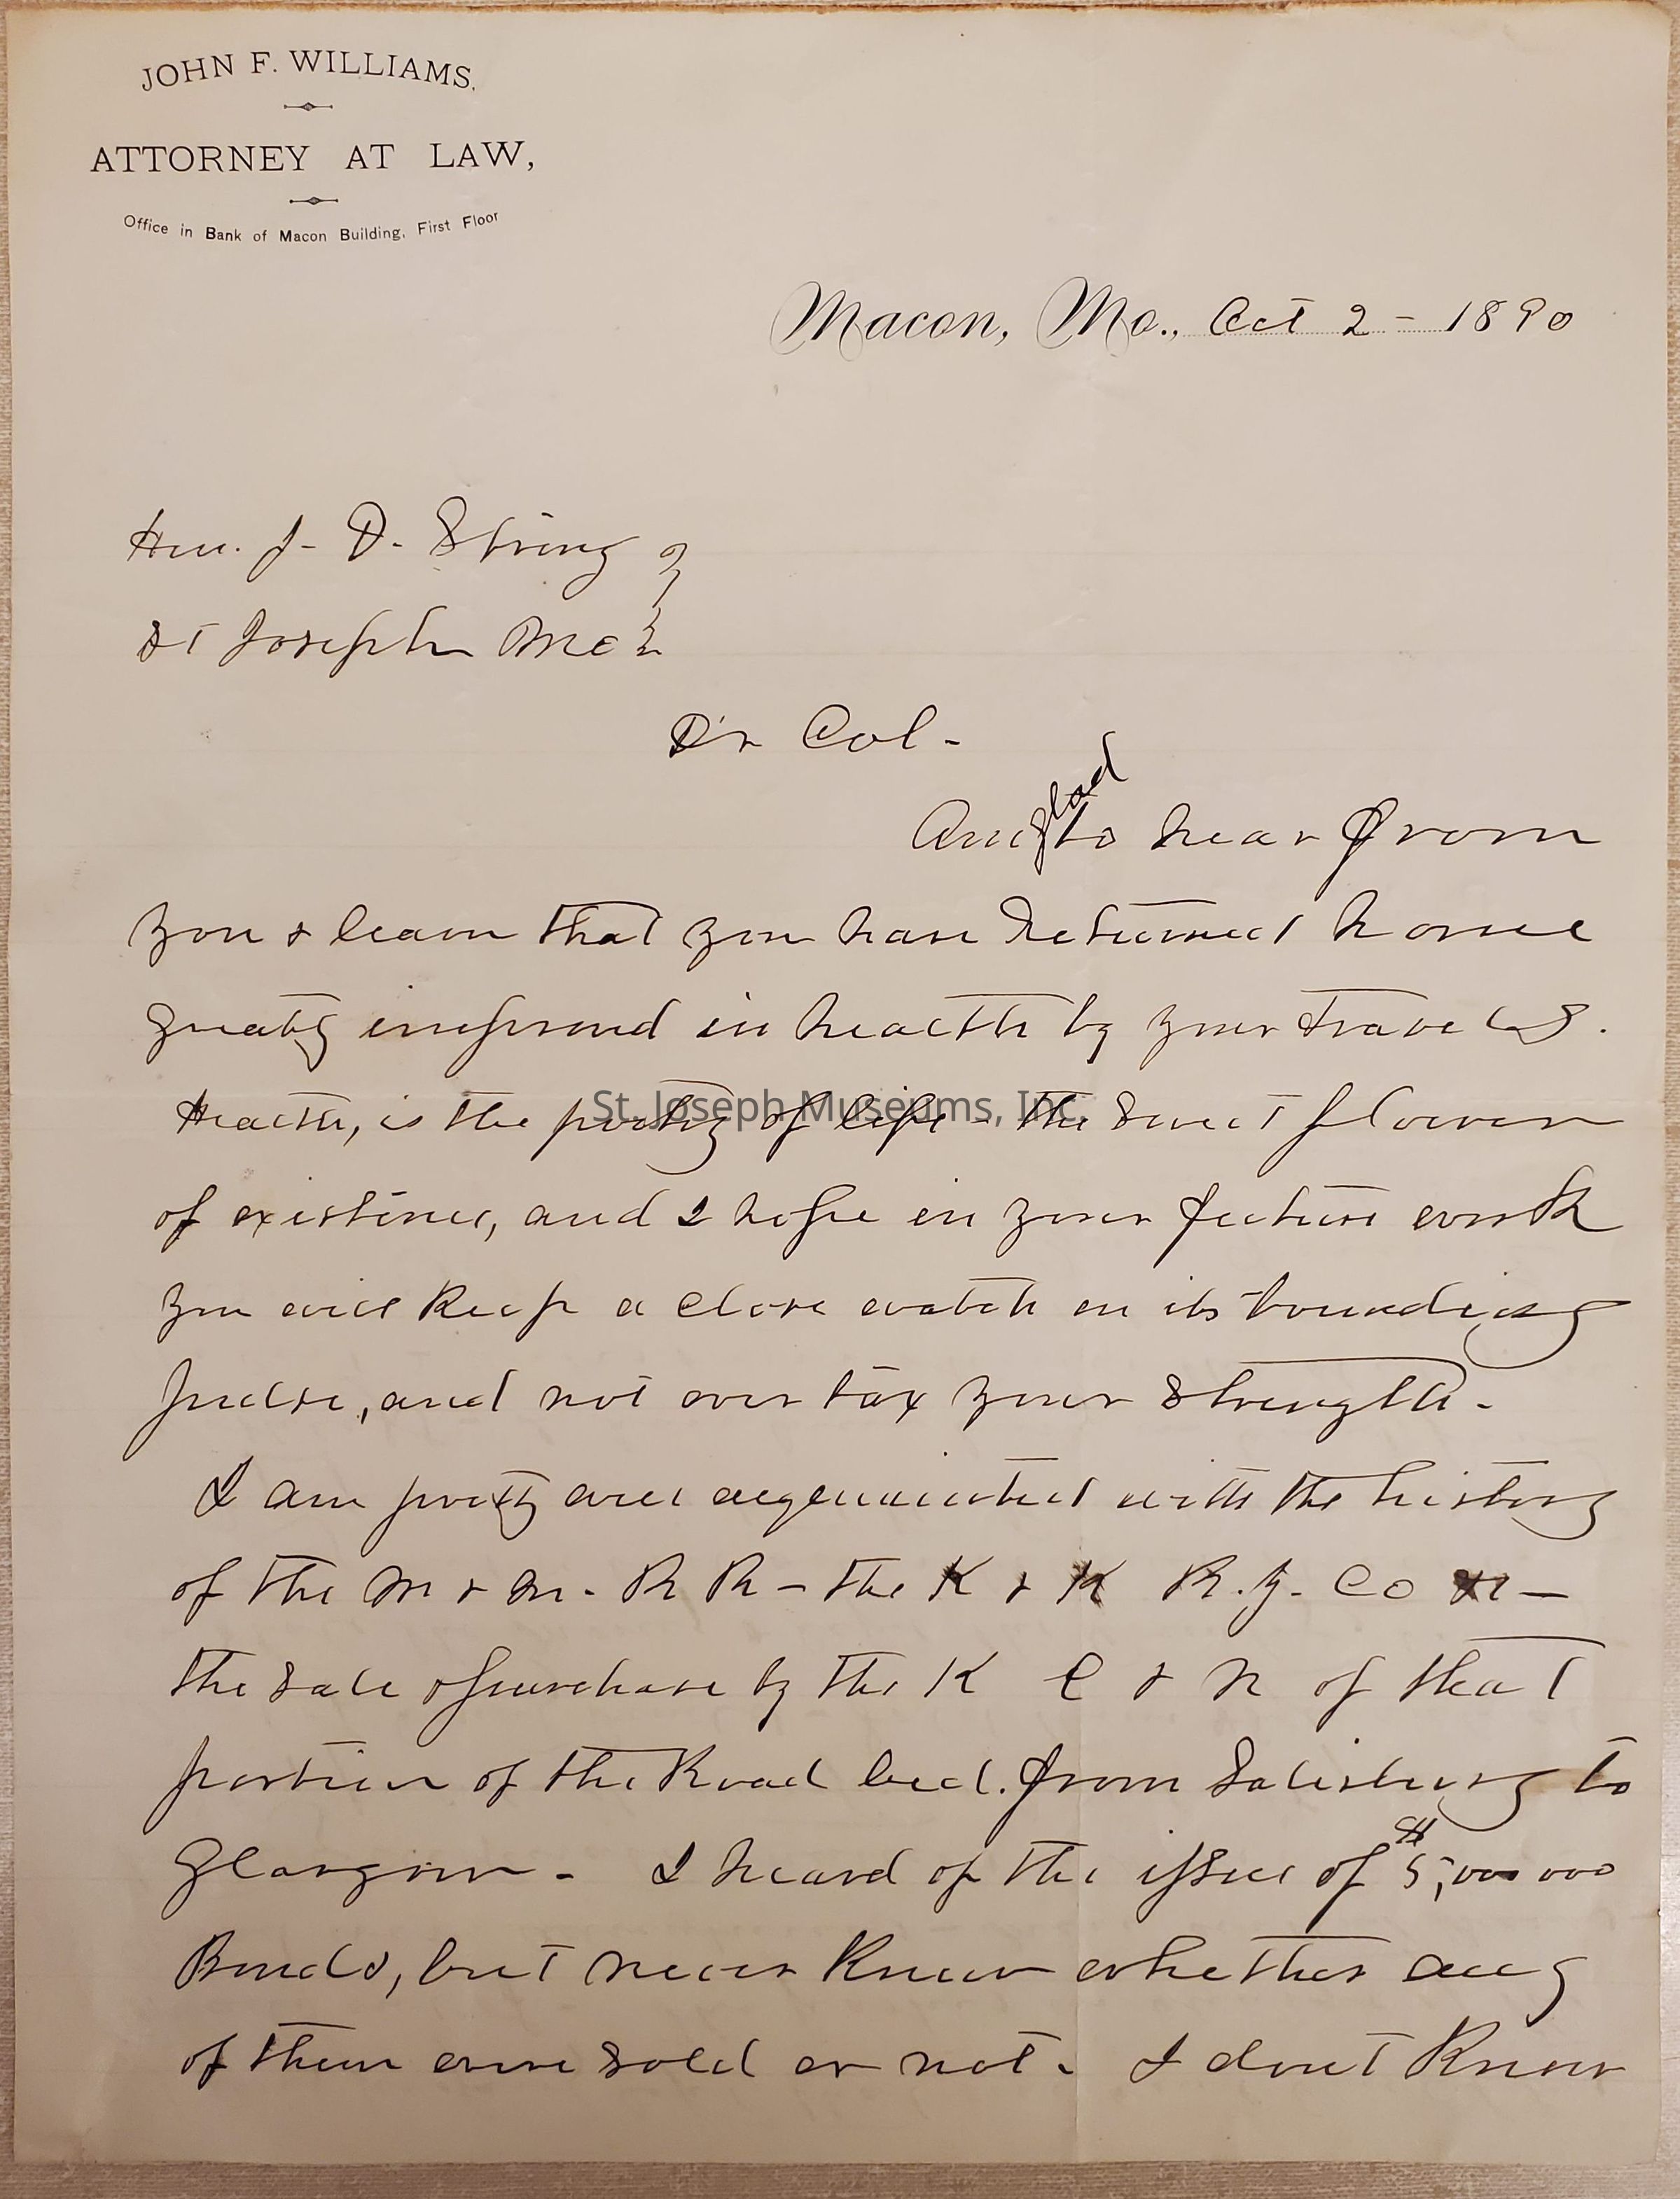 JOHN F. WILLIAMS.
ATTORNEY AT LAW,
Office in Bank of Macon Building, First Floor
Macon, Mo., Oct 2 - 1890
Hon. J. D. Strong
St Joseph Mo
D'r Col -
Am glad to hear from
you & learn that you have returned home
greatly improved in health by your travels.
Health, is the poetry of life - the sweet flower
of existence, and I hope in your future work
you will keep a close watch on its bounding
pulse, and not over tax your strength -
I am pretty well acquainted with the history
of the M & M. R R - the K & K R.y. Co -
the sale & purchase by the K C & N of that
portion of the Road bed. from Salisbury to
Glasgow - I heard of the issue of $5,000 000
Bonds, but never knew whether any
of them were sold or not - I don't know
St. Joseph Museums, Inc.